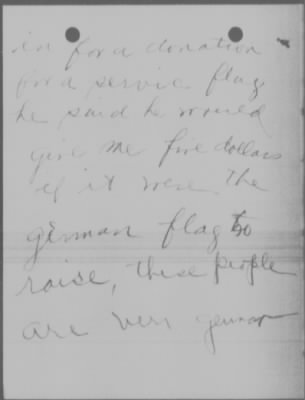 in for a donation
for a servic flag
he said he would
give me five dollars
if it were the
german flag to
raise, these people
are very german